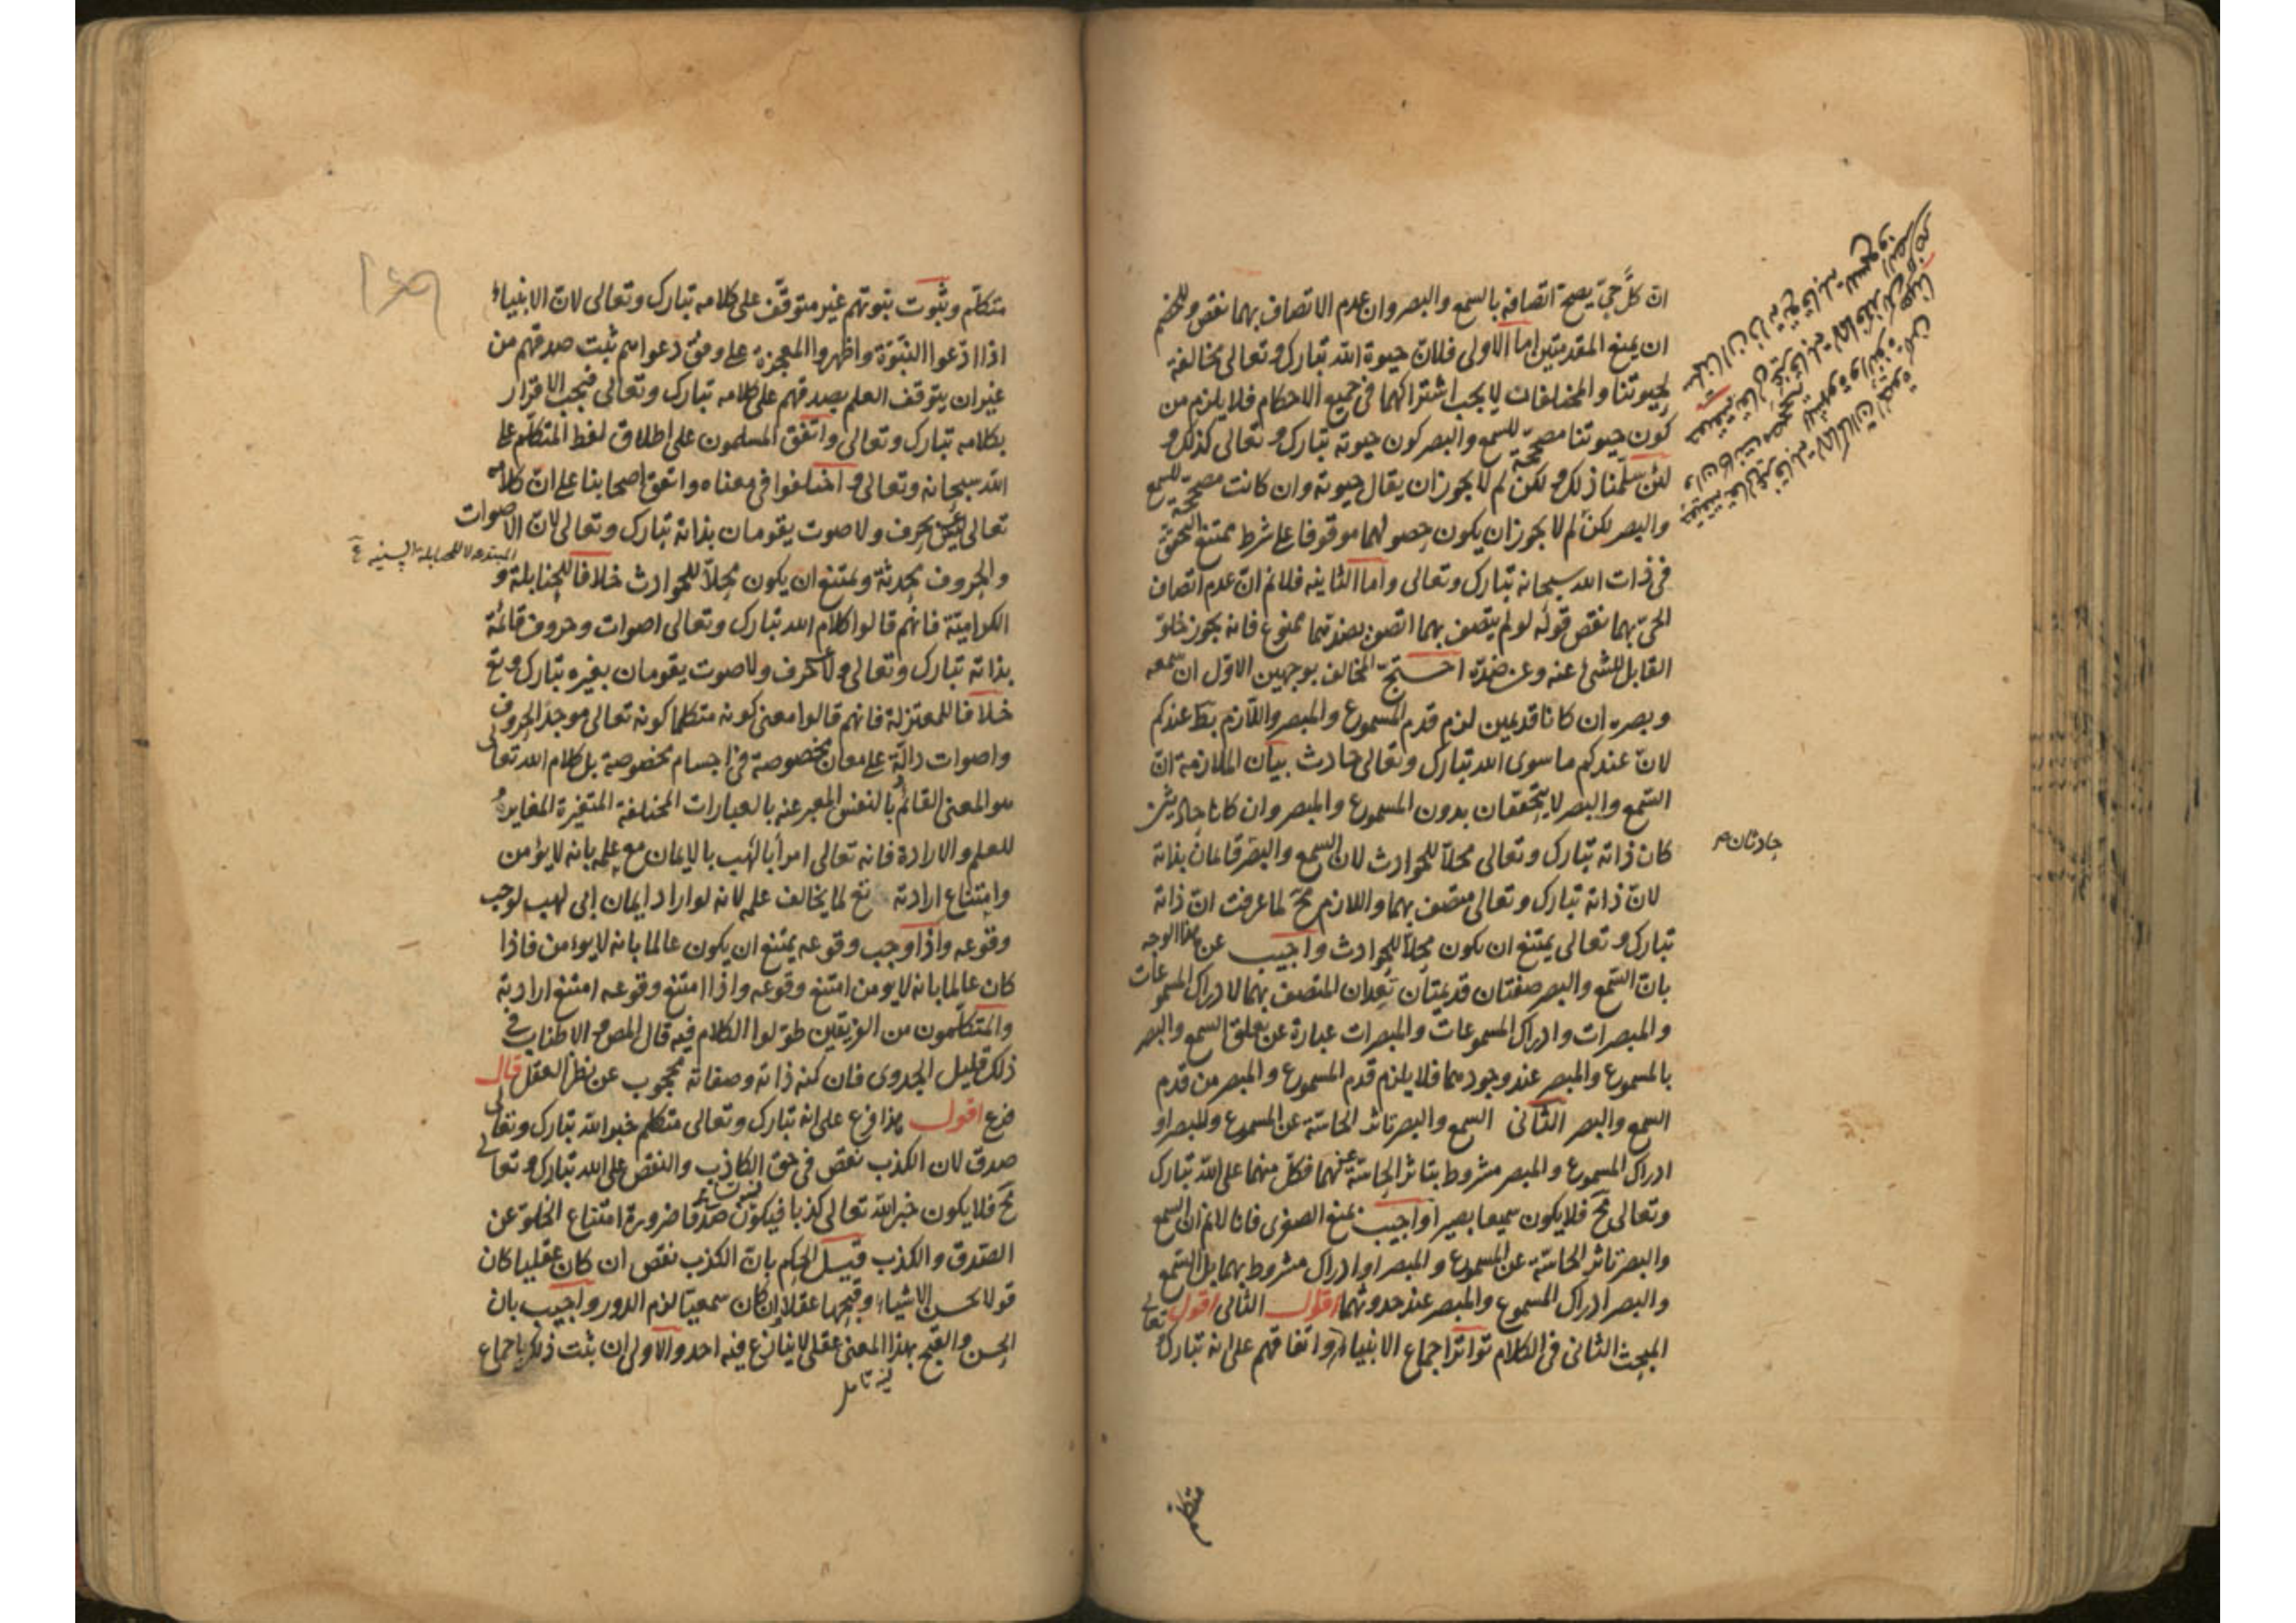 ان كلّ حيّ يصح اتصافه بالسمع والبصر وان عدم الاتصاف بهما نقص وللخصم
ان يمنع المقدمتين اما الاولى فلان حيوة الله تبارك وتعالى مخالفة
لحيوتنا والمختلفات لا يجب اشتراكهما فى جميع الاحكام فلا يلزم من
كون حيوتنا مصححة للسمع والبصر كون حيوته تبارك وتعالى كذلك و
لئن سلّمنا ذلك لكن لم لا يجوز ان يقال حيوته وان كانت مصححة للسمع
والبصر لكن لم لا يجوز ان يكون حصولهما موقوفا على شرط ممتنع التحقق
فى ذات الله سبحانه تبارك وتعالى واما الثانيه فلانم ان عدم اتصاف
الحىّ بهما نقص قوله لو لم يتصف بهما اتصف بضدهما ممنوع فانه يجوز خلوّ
القابل للشئ عنه وعن ضدّه احتجّ المخالف بوجهين الاوّل ان سمعه
وبصره ان كانا قديمين لزم قدم المسموع والمبصر واللازم بط عندكم
لان عندكم ما سوى الله تبارك وتعالى حادث بيان الملازمة ان
السّمع والبصر لا يتحققان بدون المسموع والمبصر وان كانا حادثين
كان ذاته تبارك وتعالى محلّا للحوادث لان السمع والبصر قائمان بذاته
حادثان
لان ذاته تبارك وتعالى متصف بهما واللازم مح لما عرفت ان ذاته
تبارك وتعالى يمتنع ان يكون محلّا للحوادث واجيب عن هذا الوجه
بان السّمع والبصر صفتان قديمتان تعدان المتصف بهما لادراك المسموعات
والمبصرات وادراك المسموعات والمبصرات عبارة عن تعلق السمع والبصر
بالمسموع والمبصر عند وجودهما فلا يلزم قدم المسموع والمبصر من قدم
السمع والبصر الثانى السمع والبصر تاثر الحاسّة عن المسموع والمبصر او
ادراك المسموع والمبصر مشروط بتاثر الحاسّة عنهما فكلّ منهما على الله تبارك
وتعالى مح فلا يكون سميعا بصيرا واجيب بمنع الصغرى فانا لانم ان السمع
والبصر تاثر الحاسّة عن المسموع والمبصر او ادراك مشروط بهما بل السّمع
والبصر ادراك المسموع والمبصر عند حدوثهما الثانى اقول
المبحث الثانى فى الكلام تواتر اجماع الانبياء واتفاقهم على انه تبارك و تعالى
متكلم
متكلّم وثبوت نبوتهم غير متوقّف على كلامه تبارك وتعالى لان الانبياء
اذا ادّعوا النّبوّة واظهروا المعجزة على وفق دعواهم ثبت صدقهم من
غير ان يتوقف العلم بصدقهم على كلامه تبارك وتعالى فيجب الاقرار
بكلامه تبارك وتعالى واتفق المسلمون على اطلاق لفظ المتكلّم على
الله سبحانه وتعالى و اختلفوا فى معناه واتفق اصحابنا على انّ كلامه
تعالى ليس بحرف ولا صوت يقومان بذاته تبارك وتعالى لان الاصوات
والحروف محدثة ويمتنع ان يكون محلّا للحوادث خلافا للحنابلة و
الكرامية فانهم قالوا كلام الله تبارك وتعالى اصوات وحروف قائمة
بذاته تبارك وتعالى ولا بحرف ولا صوت يقومان بغيره تبارك وتع
خلافا للمعتزلة فانهم قالوا معنى كونه متكلما كونه تعالى موجد الحروف
واصوات دالّة على معان مخصوصة فى اجسام مخصوصة بل كلام الله تعالى
هو المعنى القائم بالنفس المعبر عنه بالعبارات المختلفة المتغيرة المغاير
للعلم والارادة فانه تعالى امر أبا لهب بالايمان مع علمه بانه لا يؤمن
وامتناع ارادته تع لما يخالف علمه لانه لو اراد ايمان ابى لهب لوجب
وقوعه واذا وجب وقوعه يمتنع ان يكون عالما بانه لا يؤمن فاذا
كان عالما بانه لا يؤمن امتنع وقوعه واذا امتنع وقوعه امتنع ارادته
والمتكلّمون من الفريقين طوّلوا الكلام فيه قال المص والاطناب فى
ذلك قليل الجدوى فان كنه ذاته وصفاته محجوب عن نظر العقل قال
فرع اقول هذا فرع على انه تبارك وتعالى متكلم خبر الله تبارك وتعالى
صدق لان الكذب نقص فى حق الكاذب والنقص على الله تبارك وتعالى
مح فلا يكون خبر الله تعالى كذبا فيكون صدقا ضرورة امتناع الخلو عن
الصّدق والكذب قيل الحكم بان الكذب نقص ان كان عقليا كان
قولا بحسن الاشياء وقبحها عقلا وان كان سمعيّا لزم الدور واجيب بان
الحسن والقبح بهذا المعنى عقلى لا ينازع فيه احد والاولى ان يثبت ذلك باجماع
فيه تامل